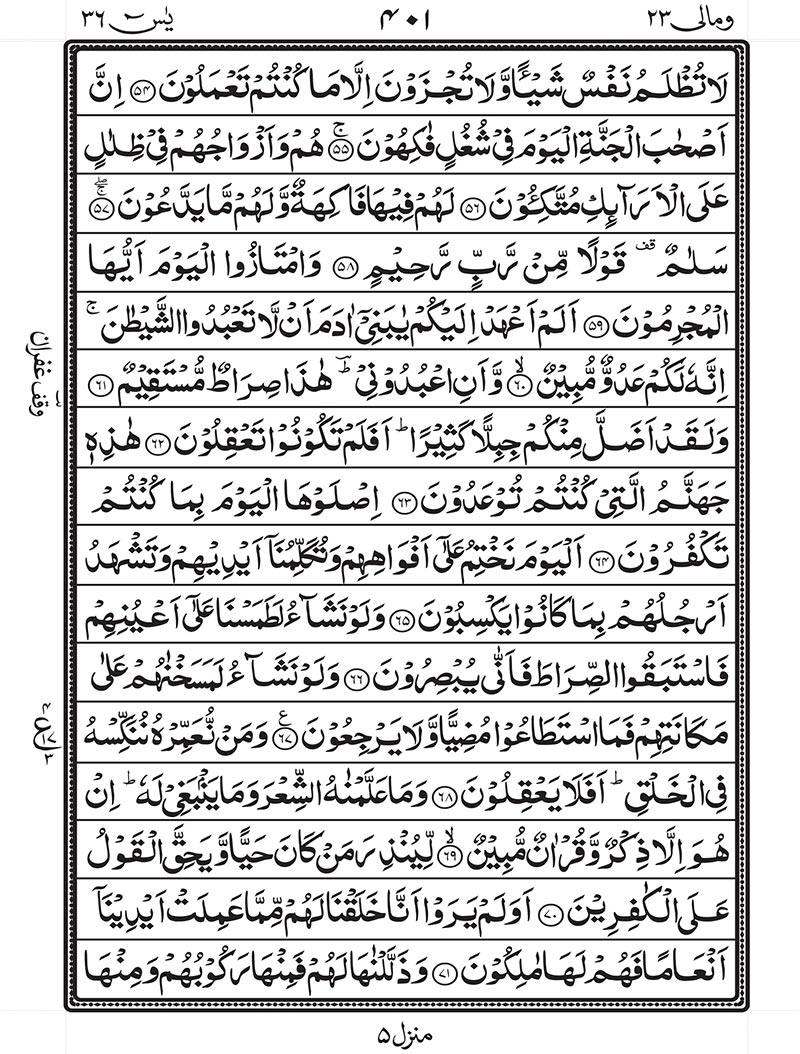 ومالی ٢٣
٤٠١
یٰس ٣٦
لَا تُظْلَمُ نَفْسٌ شَیْـًٔا وَّلَا تُجْزَوْنَ اِلَّا مَا كُنْتُمْ تَعْمَلُوْنَ ﴿۵۴﴾ اِنَّ
اَصْحٰبَ الْجَنَّةِ الْیَوْمَ فِیْ شُغُلٍ فٰكِهُوْنَ ۚ﴿۵۵﴾ هُمْ وَاَزْوَاجُهُمْ فِیْ ظِلٰلٍ
عَلَی الْاَرَآىِٕكِ مُتَّكِـُٔوْنَ ﴿۵۶﴾ لَهُمْ فِیْهَا فَاكِهَةٌ وَّلَهُمْ مَّا یَدَّعُوْنَ ۚۖ﴿۵۷﴾
سَلٰمٌ ۫ قَوْلًا مِّنْ رَّبٍّ رَّحِیْمٍ ﴿۵۸﴾ وَامْتَازُوا الْیَوْمَ اَیُّهَا
الْمُجْرِمُوْنَ ﴿۵۹﴾ اَلَمْ اَعْهَدْ اِلَیْكُمْ یٰبَنِیْۤ اٰدَمَ اَنْ لَّا تَعْبُدُوا الشَّیْطٰنَ ۚ
اِنَّهٗ لَكُمْ عَدُوٌّ مُّبِیْنٌ ۙ﴿۶۰﴾ وَّاَنِ اعْبُدُوْنِیْ ؔؕ هٰذَا صِرَاطٌ مُّسْتَقِیْمٌ ﴿۶۱﴾
وَلَقَدْ اَضَلَّ مِنْكُمْ جِبِلًّا كَثِیْرًا ؕ اَفَلَمْ تَكُوْنُوْا تَعْقِلُوْنَ ﴿۶۲﴾ هٰذِهٖ
جَهَنَّمُ الَّتِیْ كُنْتُمْ تُوْعَدُوْنَ ﴿۶۳﴾ اِصْلَوْهَا الْیَوْمَ بِمَا كُنْتُمْ
تَكْفُرُوْنَ ﴿۶۴﴾ اَلْیَوْمَ نَخْتِمُ عَلٰۤی اَفْوَاهِهِمْ وَتُكَلِّمُنَاۤ اَیْدِیْهِمْ وَتَشْهَدُ
اَرْجُلُهُمْ بِمَا كَانُوْا یَكْسِبُوْنَ ﴿۶۵﴾ وَلَوْ نَشَآءُ لَطَمَسْنَا عَلٰۤی اَعْیُنِهِمْ
فَاسْتَبَقُوا الصِّرَاطَ فَاَنّٰی یُبْصِرُوْنَ ﴿۶۶﴾ وَلَوْ نَشَآءُ لَمَسَخْنٰهُمْ عَلٰی
مَكَانَتِهِمْ فَمَا اسْتَطَاعُوْا مُضِیًّا وَّلَا یَرْجِعُوْنَ ﴿۶۷﴾ ع وَمَنْ نُّعَمِّرْهُ نُنَكِّسْهُ
فِی الْخَلْقِ ؕ اَفَلَا یَعْقِلُوْنَ ﴿۶۸﴾ وَمَا عَلَّمْنٰهُ الشِّعْرَ وَمَا یَنْۢبَغِیْ لَهٗ ؕ اِنْ
هُوَ اِلَّا ذِكْرٌ وَّقُرْاٰنٌ مُّبِیْنٌ ۙ﴿۶۹﴾ لِّیُنْذِرَ مَنْ كَانَ حَیًّا وَّیَحِقَّ الْقَوْلُ
عَلَی الْكٰفِرِیْنَ ﴿۷۰﴾ اَوَلَمْ یَرَوْا اَنَّا خَلَقْنَا لَهُمْ مِّمَّا عَمِلَتْ اَیْدِیْنَاۤ
اَنْعَامًا فَهُمْ لَهَا مٰلِكُوْنَ ﴿۷۱﴾ وَذَلَّلْنٰهَا لَهُمْ فَمِنْهَا رَكُوْبُهُمْ وَمِنْهَا
وقف غفران
منزل ۵